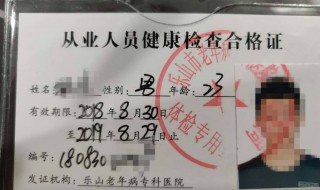 从业人员健康检查合格证
姓名: 性别: 男 年龄: 23
有效期限: 2018年8月30日
至2019年8月29日止
编号: 180830
发证机构: 乐山老年病专科医院
乐山市老年
体检专用